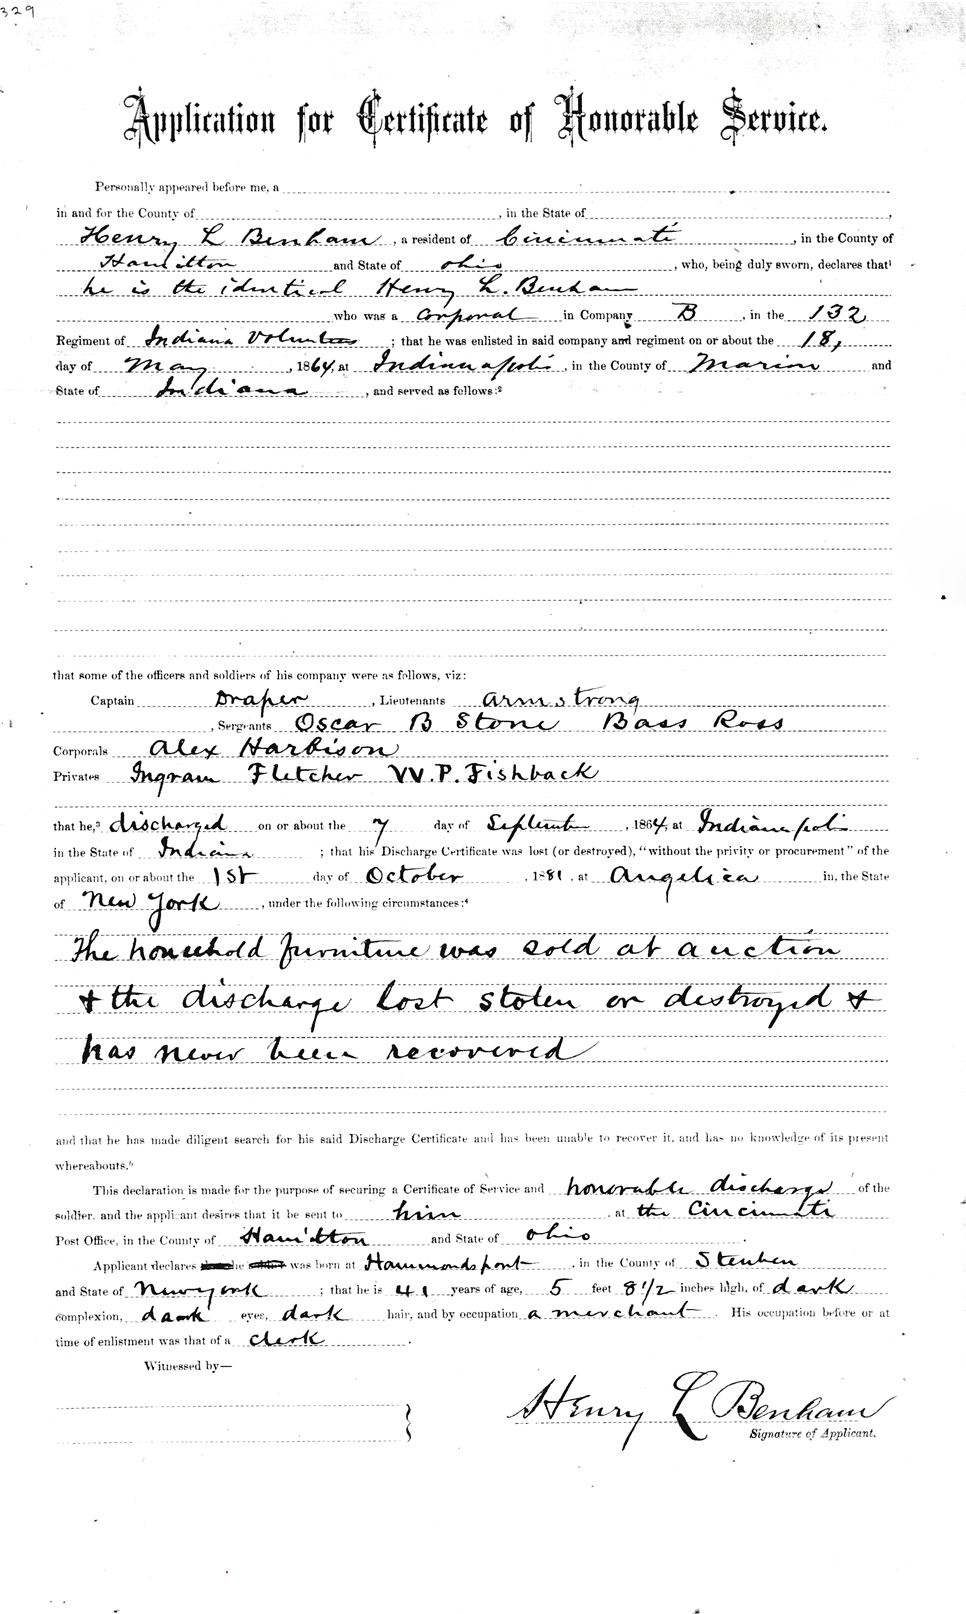 329
Application for Certificate of Honorable Service.
Personally appeared before me, a
in and for the County of , in the State of ,
Henry L Benham , a resident of Cincinnati , in the County of
Hamilton and State of Ohio , who, being duly sworn, declares that¹
he is the identical Henry L. Benham
who was a Corporal in Company B , in the 132
Regiment of Indiana Volunteers ; that he was enlisted in said company and regiment on or about the 18,
day of May , 1864, at Indianapolis , in the County of Marion and
State of Indiana , and served as follows:²
that some of the officers and soldiers of his company were as follows, viz:
Captain Draper , Lieutenants Armstrong
, Sergeants Oscar B Stone Bass Ross
Corporals Alex Harbison
Privates Ingram Fletcher W.P. Fishback
that he,³ discharged on or about the 7 day of September , 1864, at Indianapolis
in the State of Indiana ; that his Discharge Certificate was lost (or destroyed), "without the privity or procurement" of the
applicant, on or about the 1st day of October , 1881 , at Angelica in, the State
of New York , under the following circumstances:⁴
The household furniture was sold at auction
& the discharge lost stolen or destroyed &
has never been recovered
and that he has made diligent search for his said Discharge Certificate and has been unable to recover it, and has no knowledge of its present
whereabouts.⁵
This declaration is made for the purpose of securing a Certificate of Service and honorable discharge of the
soldier, and the applicant desires that it be sent to him at the Cincinnati
Post Office, in the County of Hamilton and State of Ohio
Applicant declares he was born at Hammondsport , in the County of Steuben
and State of New York ; that he is 41 years of age, 5 feet 8 1/2 inches high, of dark
complexion, dark eyes, dark hair, and by occupation a merchant . His occupation before or at
time of enlistment was that of a Clerk .
Witnessed by—
Henry L Benham
Signature of Applicant.